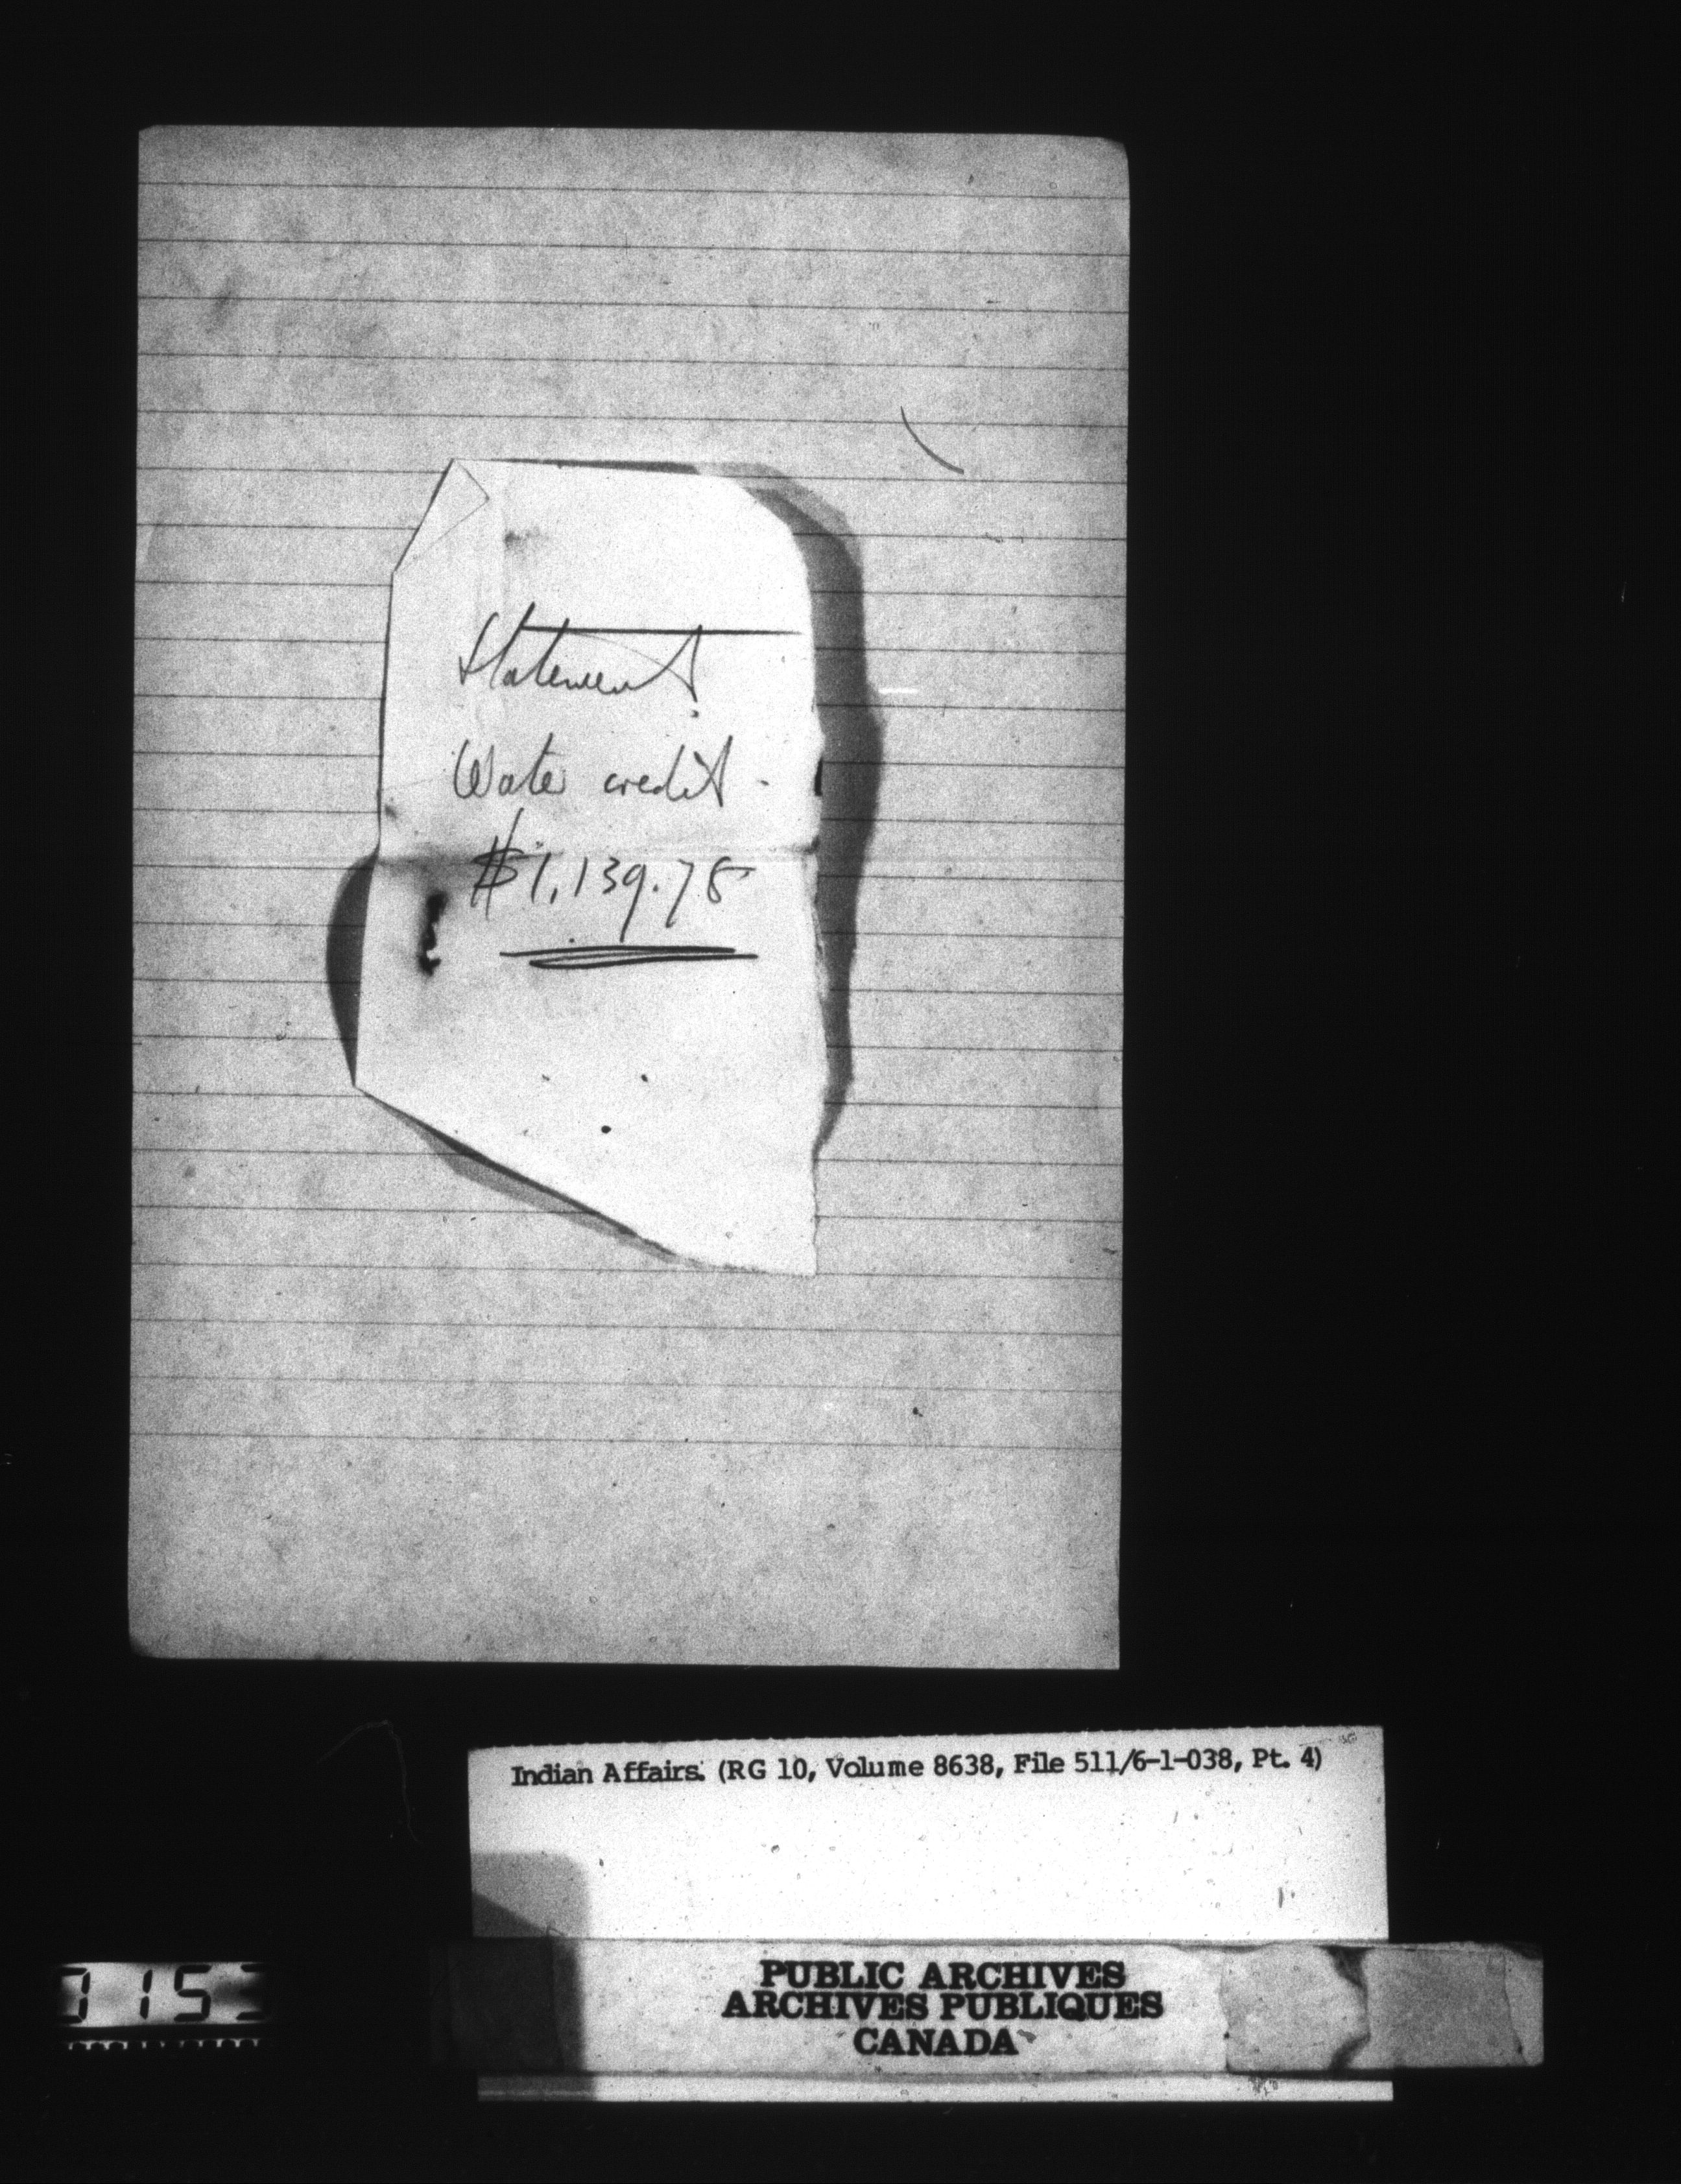 Statement.
Water credit -
$1,139.78
Indian Affairs. (RG 10, Volume 8638, File 511/6-1-038, Pt. 4)
PUBLIC ARCHIVES
ARCHIVES PUBLIQUES
CANADA